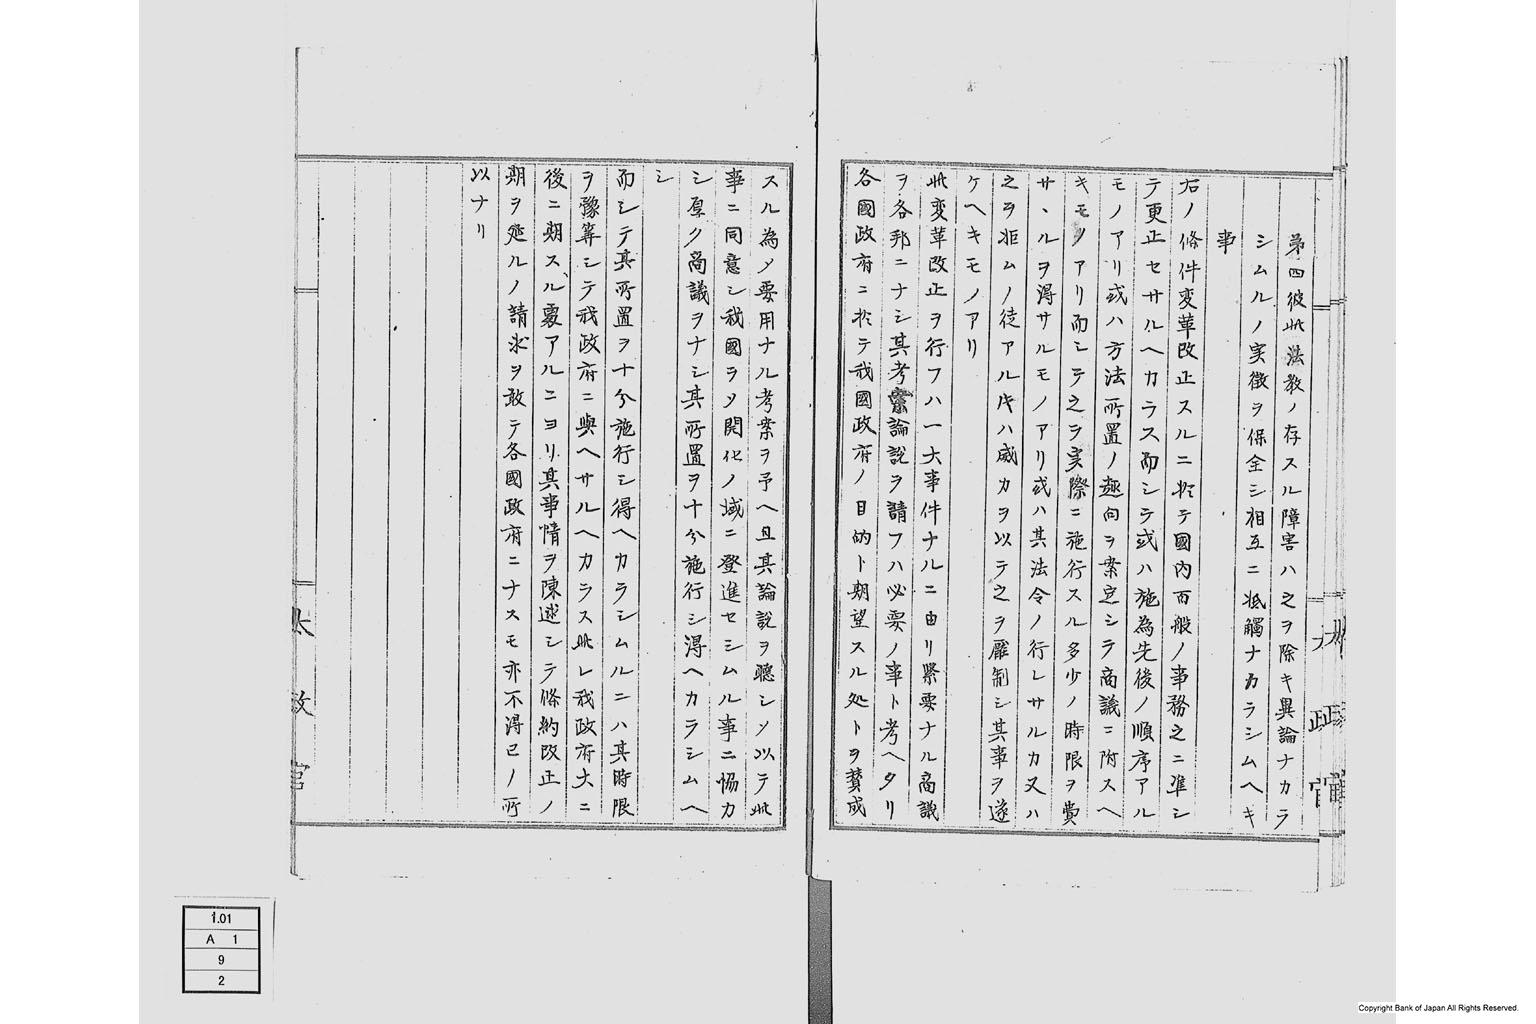 第四彼此法教ノ存スル障害ハ之ヲ除キ異論ナカラ
シムルノ実徴ヲ保全シ相互ニ抵觸ナカラシムヘキ
事
右ノ條件変革改正スルニ於テ國内百般ノ事務之ニ準シ
テ更正セサルヘカラス而シテ或ハ施為先後ノ順序アル
モノアリ或ハ方法所置ノ趣向ヲ案定シテ商議ニ附スヘ
キモノアリ而シテ之ヲ実際ニ施行スル多少ノ時限ヲ費
サヽルヲ得サルモノアリ或ハ其法令ノ行レサルカ又ハ
之ヲ拒ムノ徒アル片ハ威力ヲ以テ之ヲ壓制シ其事ヲ遂
ケヘキモノアリ
此変革改正ヲ行フハ一大事件ナルニ由リ緊要ナル商議
ヲ各邦ニナシ其考案論説ヲ請フハ必要ノ事ト考ヘタリ
各國政府ニ於テ我國政府ノ目的ト期望スル処トヲ賛成
スル為メ要用ナル考案ヲ予ヘ且其論説ヲ聴シメ以テ此
事ニ同意シ我國ヲメ開化ノ域ニ登進セシムル事ニ恊力
シ厚ク商議ヲナシ其所置ヲ十分施行シ得ヘカラシムヘ
シ
而シテ其所置ヲ十分施行シ得ヘカラシムルニハ其時限
ヲ豫算シテ我政府ニ與ヘサルヘカラス此レ我政府大ニ
後ニ期スル處アルニヨリ其事情ヲ陳述シテ條約改正ノ
期ヲ延ルノ請求ヲ敢テ各國政府ニナスモ亦不得已ノ所
以ナリ
太政官
太政官
1.01
A 1
9
2
Copyright Bank of Japan All Rights Reserved.